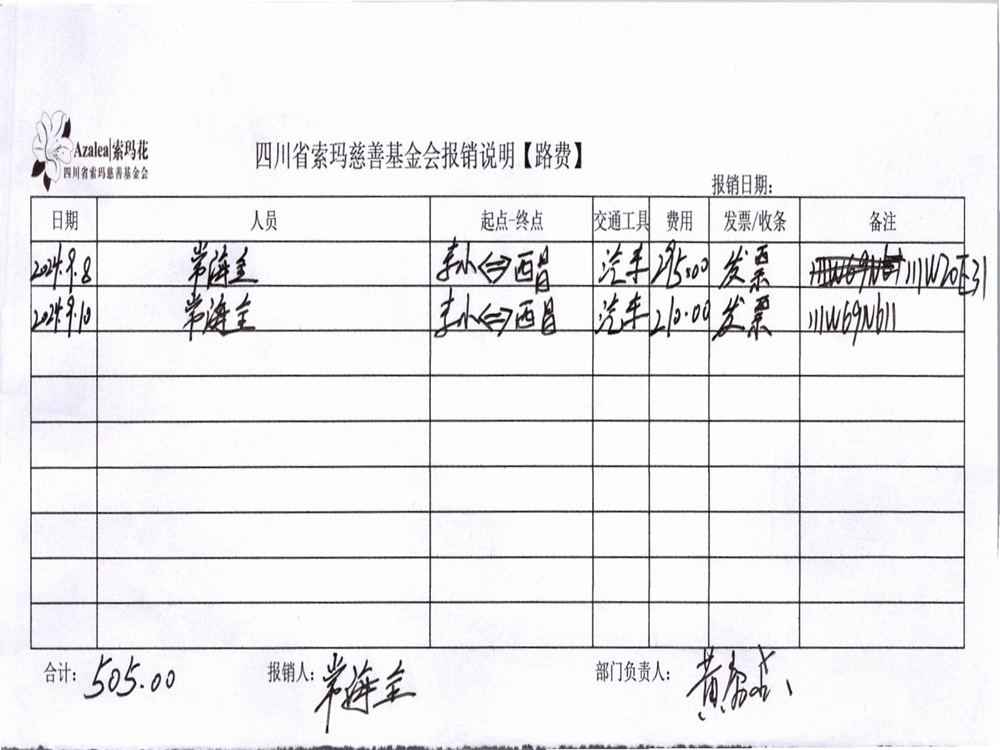 Azalea|索玛花
四川省索玛慈善基金会
四川省索玛慈善基金会报销说明【路费】
报销日期:
日期 人员 起点-终点 交通工具 费用 发票/收条 备注
2024.9.8 常海全 西昌 汽车 295.00 发票 川W20E31
2024.9.10 常海全 西昌 汽车 210.00 发票 川W69N611
合计: 505.00 报销人: 常海全 部门负责人: 黄